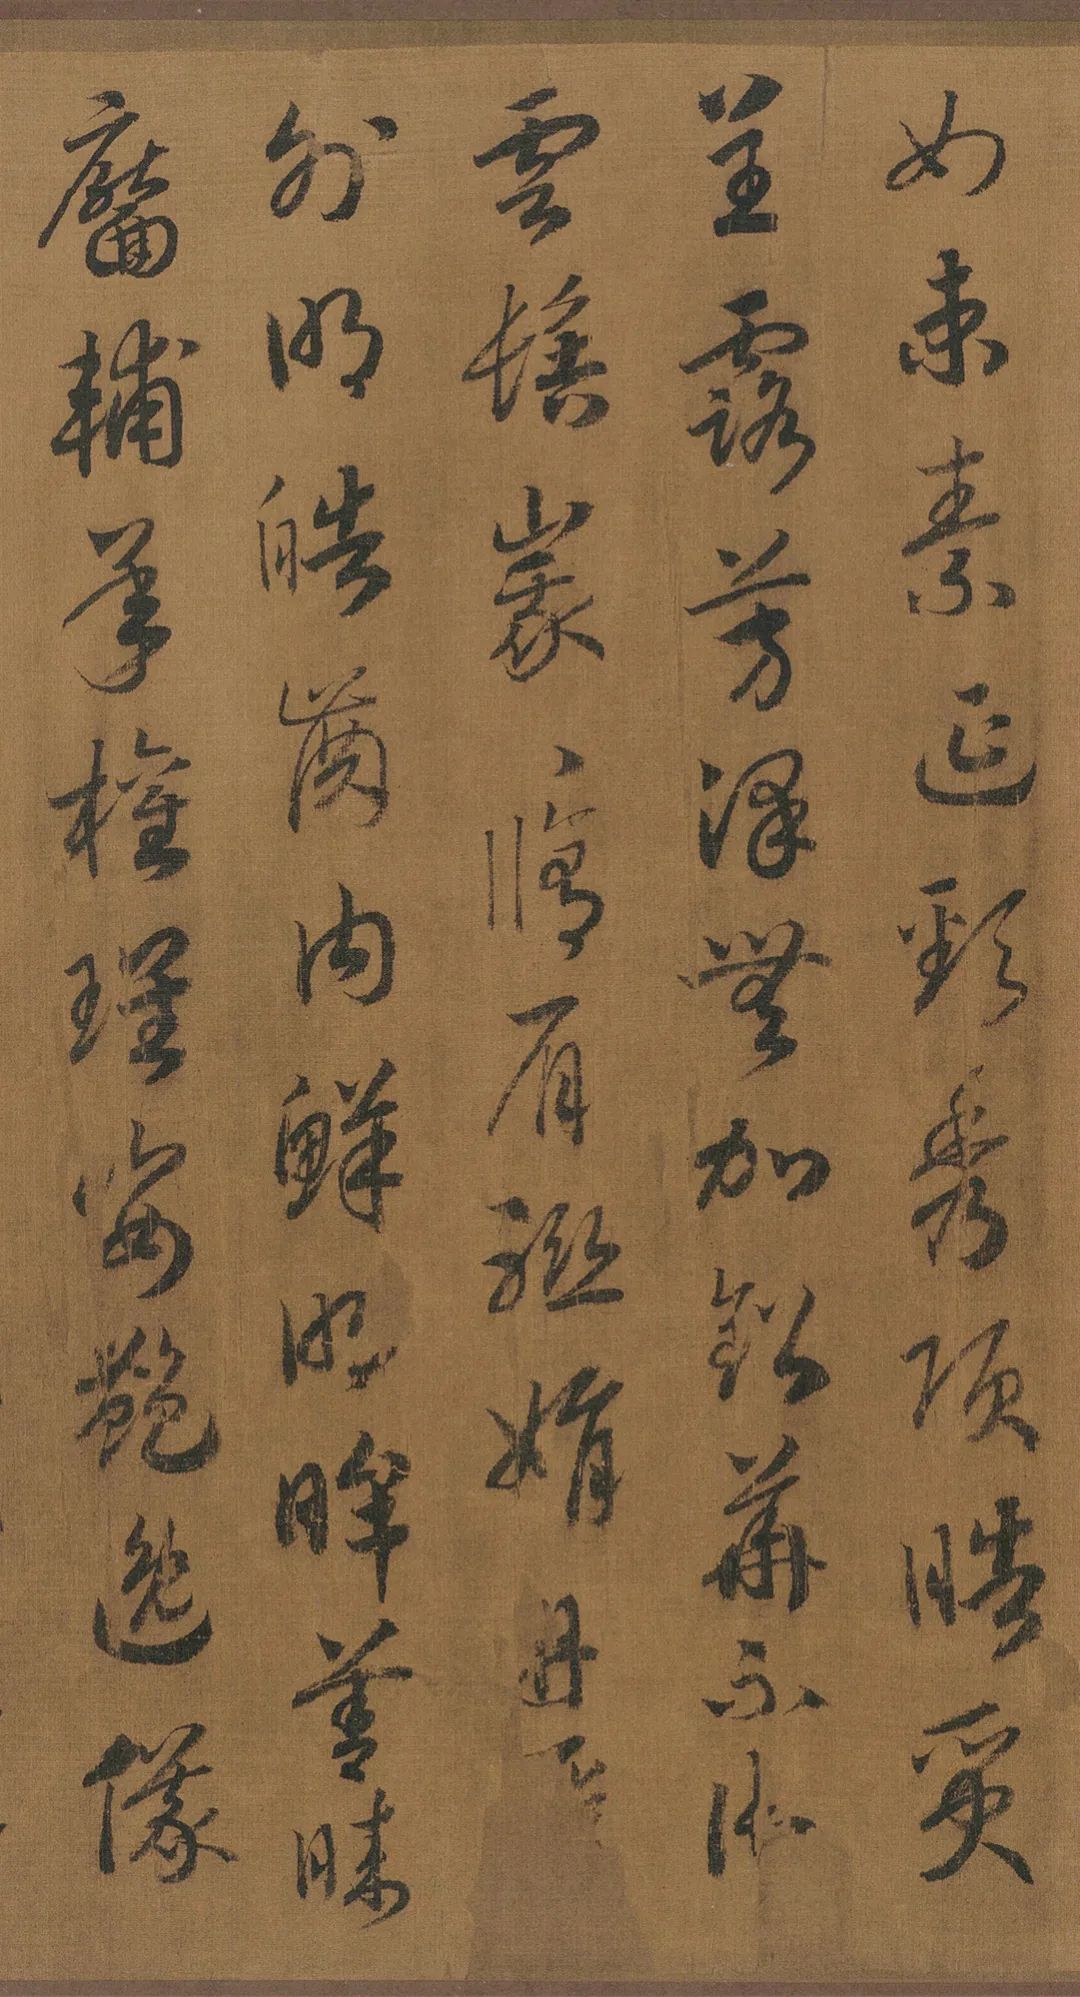 如束素延頸秀項皓質
呈露芳澤無加鉛華不御
雲髻峩〻脩眉聯娟丹
外朗皓齒內鮮明眸善睞
靨輔承權瓌姿艷逸儀